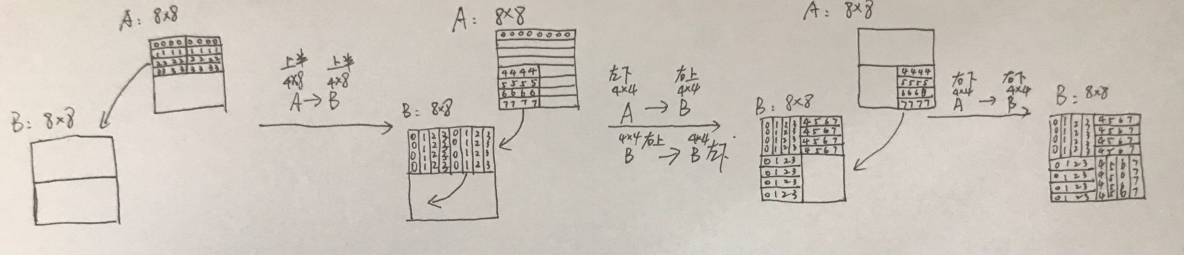 A: 8×8
0000 0000
1111 1111
2222 2222
3333 3333
B: 8×8
上半 上半
4×8 4×8
A → B
A: 8×8
00000000
4444
5555
6666
7777
B: 8×8
0 1 2 3 0 1 2 3
0 1 2 3 0 1 2 3
0 1 2 3 0 1 2 3
0 1 2 3 0 1 2 3
左下 右上
4×4 4×4
A → B
4×4右上 4×4
B → B左下
A: 8×8
4444
5555
6666
7777
B: 8×8
0 1 2 3 4567
0 1 2 3 4567
0 1 2 3 4567
0 1 2 3 4567
0123
0123
0123
0123
右下 右下
4×4 4×4
A → B
B: 8×8
0 1 2 3 4567
0 1 2 3 4567
0 1 2 3 4567
0 1 2 3 4567
0123 4 5 6 7
0123 4 5 6 7
0123 4 5 6 7
0123 4 5 6 7